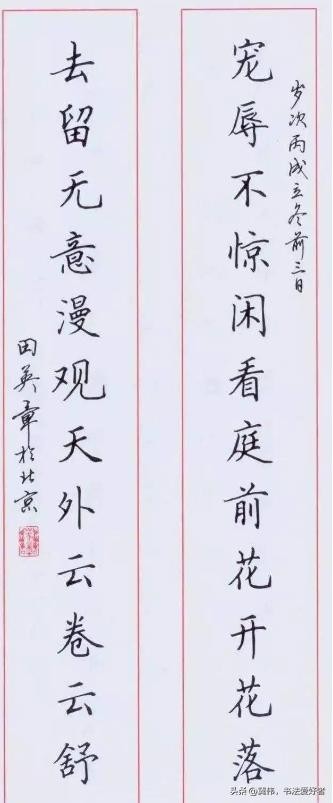 岁次丙戌立冬前三日
宠辱不惊闲看庭前花开花落
去留无意漫观天外云卷云舒
田英章於北京
头条 @冀伟，书法爱好者